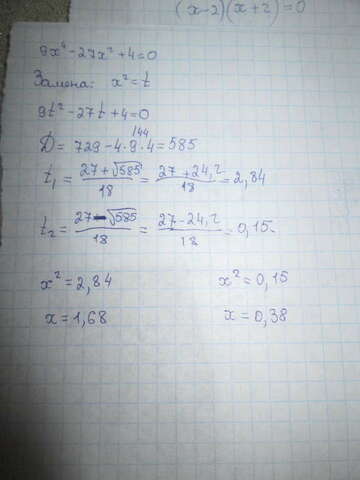 (x-2)(x+2)=0
9x⁴-27x²+4=0
Замена: x²=t
9t²-27t+4=0
144
D= 729-4·9·4=585
t₁= (27+√585)/18 = (27+24,2)/18 = 2,84
t₂= (27-√585)/18 = (27-24,2)/18 = 0,15
x²=2,84 x²=0,15
x=1,68 x=0,38